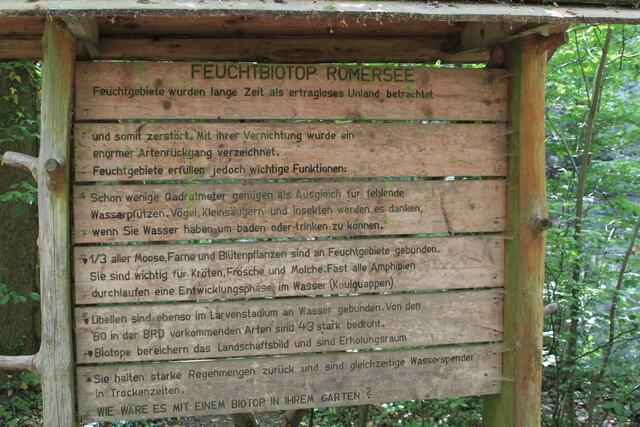 FEUCHTBIOTOP ROMERSEE
Feuchtgebiete wurden lange Zeit als ertragloses Unland betrachtet
und somit zerstört. Mit ihrer Vernichtung wurde ein
enormer Artenrückgang verzeichnet.
Feuchtgebiete erfüllen jedoch wichtige Funktionen:
Schon wenige Qadratmeter genügen als Ausgleich für fehlende
Wasserpfützen. Vögel, Kleinsäugern und Insekten werden es danken,
wenn Sie Wasser haben um baden oder trinken zu können.
1/3 aller Moose, Farne und Blütenpflanzen sind an Feuchtgebiete gebunden.
Sie sind wichtig für Kröten, Frösche und Molche. Fast alle Amphibien
durchlaufen eine Entwicklungsphase im Wasser (Kaulquappen)
Libellen sind ebenso im Larvenstadium an Wasser gebunden. Von den
80 in der BRD vorkommenden Arten sind 43 stark bedroht.
Biotope bereichern das Landschaftsbild und sind Erholungsraum
Sie halten starke Regenmengen zurück und sind gleichzeitige Wasserspender
in Trockenzeiten.
WIE WÄRE ES MIT EINEM BIOTOP IN IHREM GARTEN ?